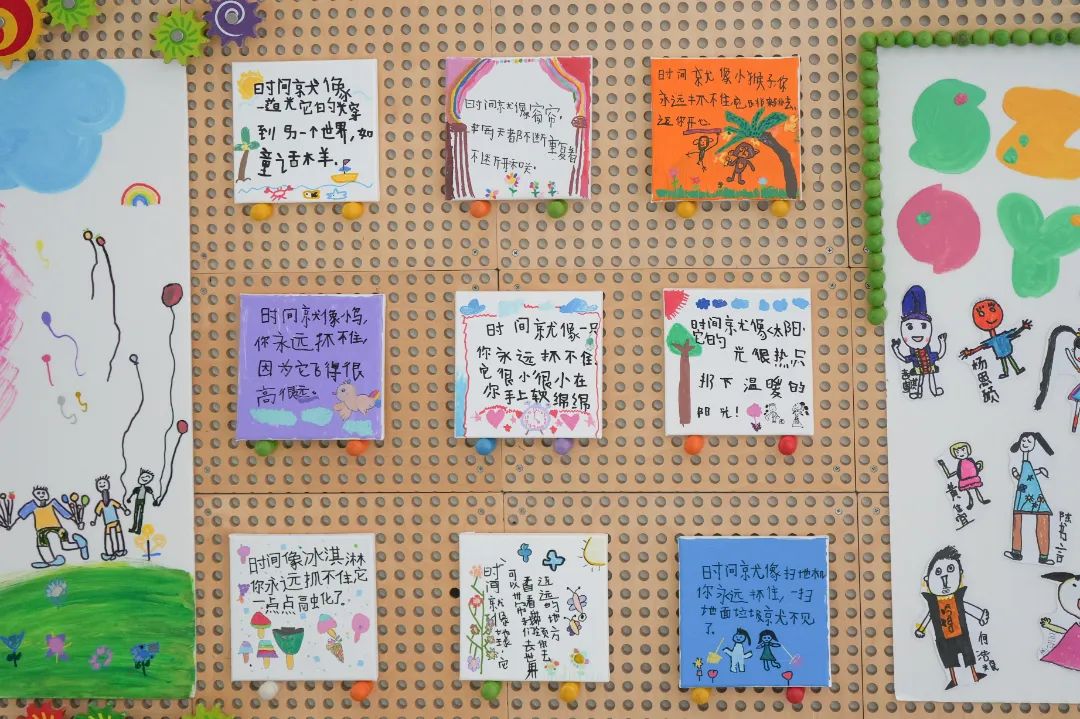 时间就像
一道光它的光穿
到另一个世界,如
童话木羊.
时间就像窗帘,
每天都不断重复着
时间就像小猴子你
永远抓不住它
时间就像小鸟,
你永远抓不住,
因为它飞得很
高很远.
时间就像一只
你永远抓不住.
它很小很小在
你手上软绵绵
时间就像太阳.
它的光很热只
扔下温暖的
阳光!
时间像冰淇淋
你永远抓不住它
一点点融虫化了.
时间就像地球.它
可以带我们去世界
看看
远的地方
时间就像扫地机
你永远抓住,一扫
地面垃圾就不见
了.
杨思颖